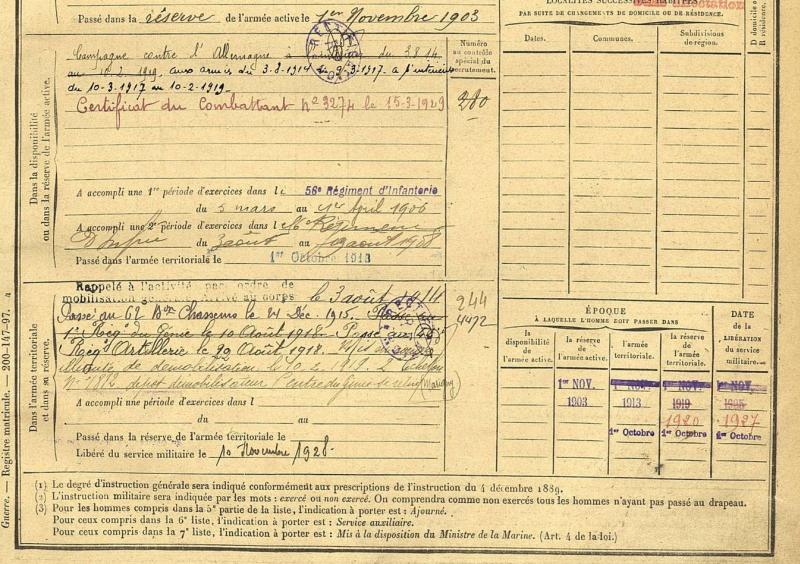 Passé dans la réserve de l'armée active le 1er Novembre 1903
Campagne contre l'Allemagne du 3.8.14
au 10.2.1919, aux armées du 3-8-1914 au 9-3-1917. à l'intérieur
du 10-3-1917 au 10-2-1919.
Certificat du Combattant n° 3274 le 15-3-1929
Dans la disponibilité
ou dans la réserve de l'armée active.
A accompli une 1re période d'exercices dans l 56e Régiment d'Infanterie
du 5 mars au 1er April 1906
A accompli une 2e période d'exercices dans l Régiment
D'Infie du août au août 1908
Passé dans l'armée territoriale le 1er Octobre 1913
Numéro
au contrôle
spécial du
recrutement.
280
LOCALITÉS SUCCESSIVES HABITÉES
PAR SUITE DE CHANGEMENTS DE DOMICILE OU DE RÉSIDENCE.
Dates.
Communes.
Subdivisions
de région.
D domicile ou
R résidence.
Rappelé à l'activité par ordre de
mobilisation générale Arrivé au corps le 3 août 1914
Passé au 62 Bon Chasseurs le 24 Déc. 1915. Passé au
1er Reg. du Génie le 10 Août 1918. Passé au
Regt Artillerie le 29 Août 1918.
de démobilisation le 10.2.1919 2e Echelon
dépôt démobilisateur Centre du Génie
Dans l'armée territoriale
et dans sa réserve.
A accompli une période d'exercices dans l
du au
Passé dans la réserve de l'armée territoriale le
Libéré du service militaire le 10 Novembre 1928.
944
4472
ÉPOQUE
À LAQUELLE L'HOMME DOIT PASSER DANS
DATE
de la
LIBÉRATION
du service
militaire.
la
disponibilité
de
l'armée active.
la réserve
de
l'armée active.
l'armée
territoriale.
la réserve
de l'armée
territoriale.
1er NOV. 1er NOV. 1er NOV. 1er NOV.
1903 1913 1919 1925
1920 1927
1er Octobre 1er Octobre 1er Octobre
Guerre. — Registre matricule. — 200-147-97.
(1) Le degré d'instruction générale sera indiqué conformément aux prescriptions de l'instruction du 4 décembre 1889.
(2) L'instruction militaire sera indiquée par les mots : exercé ou non exercé. On comprendra comme non exercés tous les hommes n'ayant pas passé au drapeau.
(3) Pour les hommes compris dans la 5e partie de la liste, l'indication à porter est : Ajourné.
Pour ceux compris dans la 6e liste, l'indication à porter est : Service auxiliaire.
Pour ceux compris dans la 7e liste, l'indication à porter est : Mis à la disposition du Ministre de la Marine. (Art. 4 de la loi.)